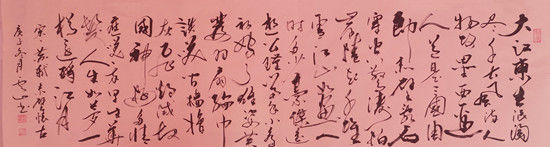 大江東去浪淘
盡千古風流人
物故壘西邊
人道是三國周
郎赤壁亂石
穿空驚濤拍
岸捲起千堆
雪江山如畫一
時多少豪傑遥
想公瑾當年小喬
初嫁了雄姿英
發羽扇綸巾
談笑間檣櫓
灰飛煙滅故
國神遊多情
應笑我早生華
髮人生如夢一
樽還酹江月
宋蘇軾赤壁懷古
庚子